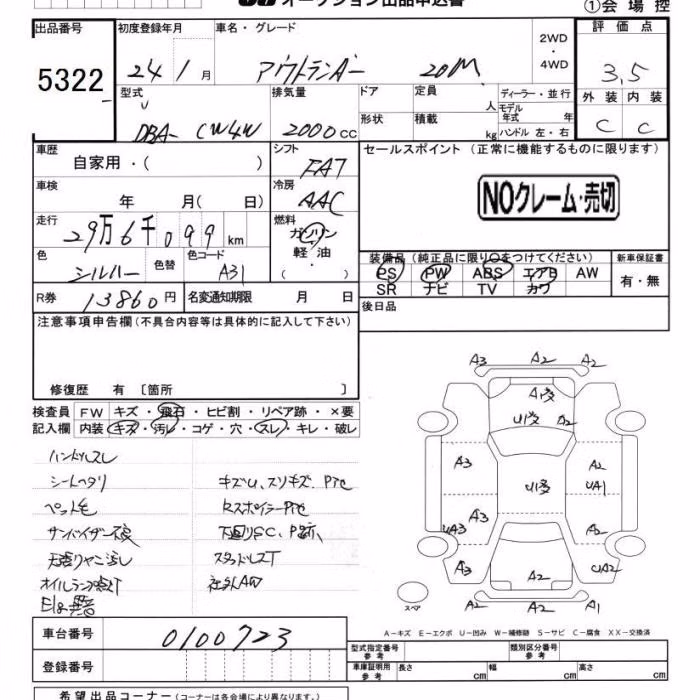 オークション出品申込書
①会場控
出品番号
5322
初度登録年月
24/1月
車名・グレード
アウトランダー 20M
2WD・4WD
評価点
3.5
型式
DBA-CW4W
排気量
2000cc
ドア
形状
定員
人
積載
kg
ディーラー・並行
モデル年式 年
ハンドル 左・右
外装 内装
C C
車歴
自家用・( )
シフト
FAT
セールスポイント(正常に機能するものに限ります)
NOクレーム・売切
車検
年 月( 日)
冷房
AAC
走行
29万6千099km
燃料
ガソリン
軽油
・( )
色
シルバー
色替
色コード
A31
装備品(純正品に限り○をつけてください)
新車保証書
PS PW ABS エアB AW
SR ナビ TV カワ
有・無
R券
13860円
名変通知期限 月 日
後日品
注意事項申告欄(不具合内容等は具体的に記入して下さい)
修復歴 有〔箇所 〕
検査員
記入欄
FW キズ・飛石・ヒビ割・リペア跡・×要
内装 キズ・汚レ・コゲ・穴・スレ・キレ・破レ
ハンドルスレ
シートヘタリ
ペット毛
サンバイザー
オイルランプ点灯
Eg異音
キズU、スリキズ
下回りSC、
スタッドレスT
社外AW
A3 A2 A2
A1多
U1多 A2
A3 U1多 A2
UA1
A3
UA3 A2
A3 A2 UA2
A2 A2 A1
スペア
A-キズ E-エクボ U-凹み W-補修跡 S-サビ C-腐食 XX-交換済
車台番号
0100723
登録番号
型式指定番号
参考
類別区分番号
参考
車庫証明用
参考
長さ cm
幅 cm
高さ cm
希望出品コーナー(コーナーは各会場により異なります。)